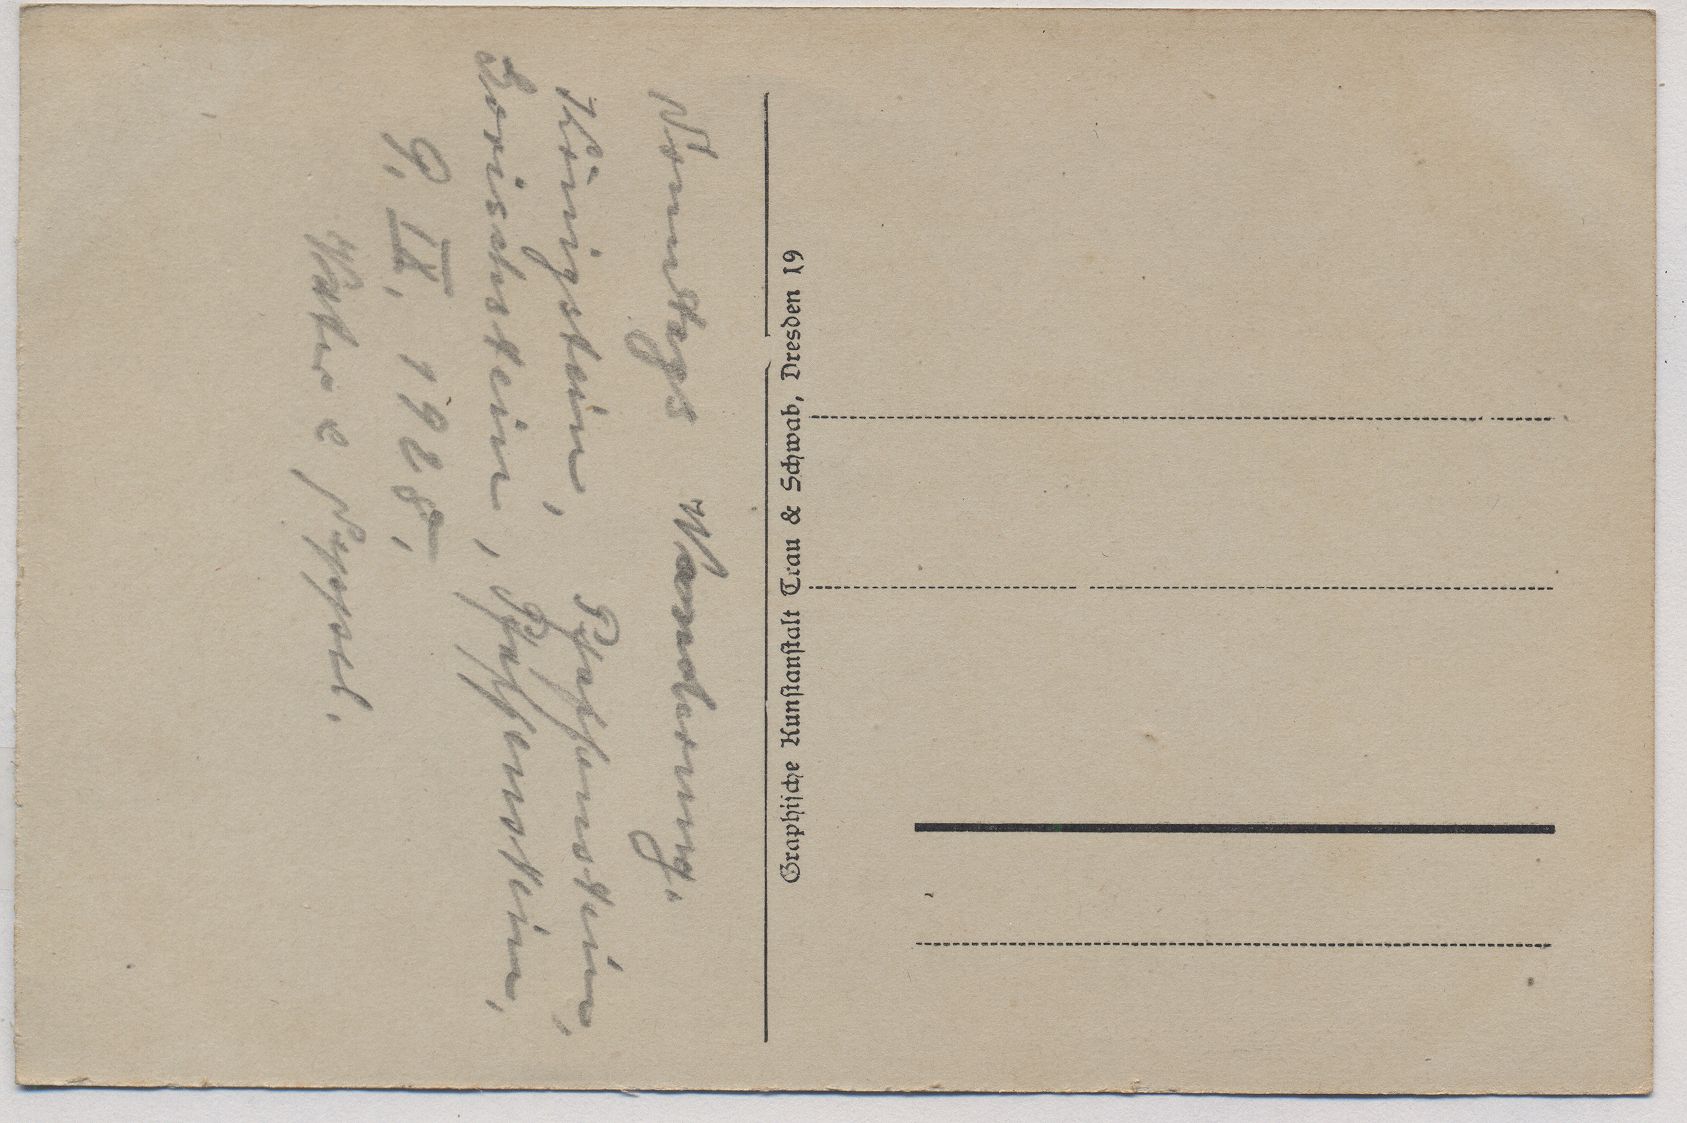 Sonntags Wanderung.
Königstein, Pfaffenstein,
Gorischstein, Pfaffenstein,
9. IX. 1928.
Seppel.
Graphische Kunstanstalt Trau & Schwab, Dresden 19